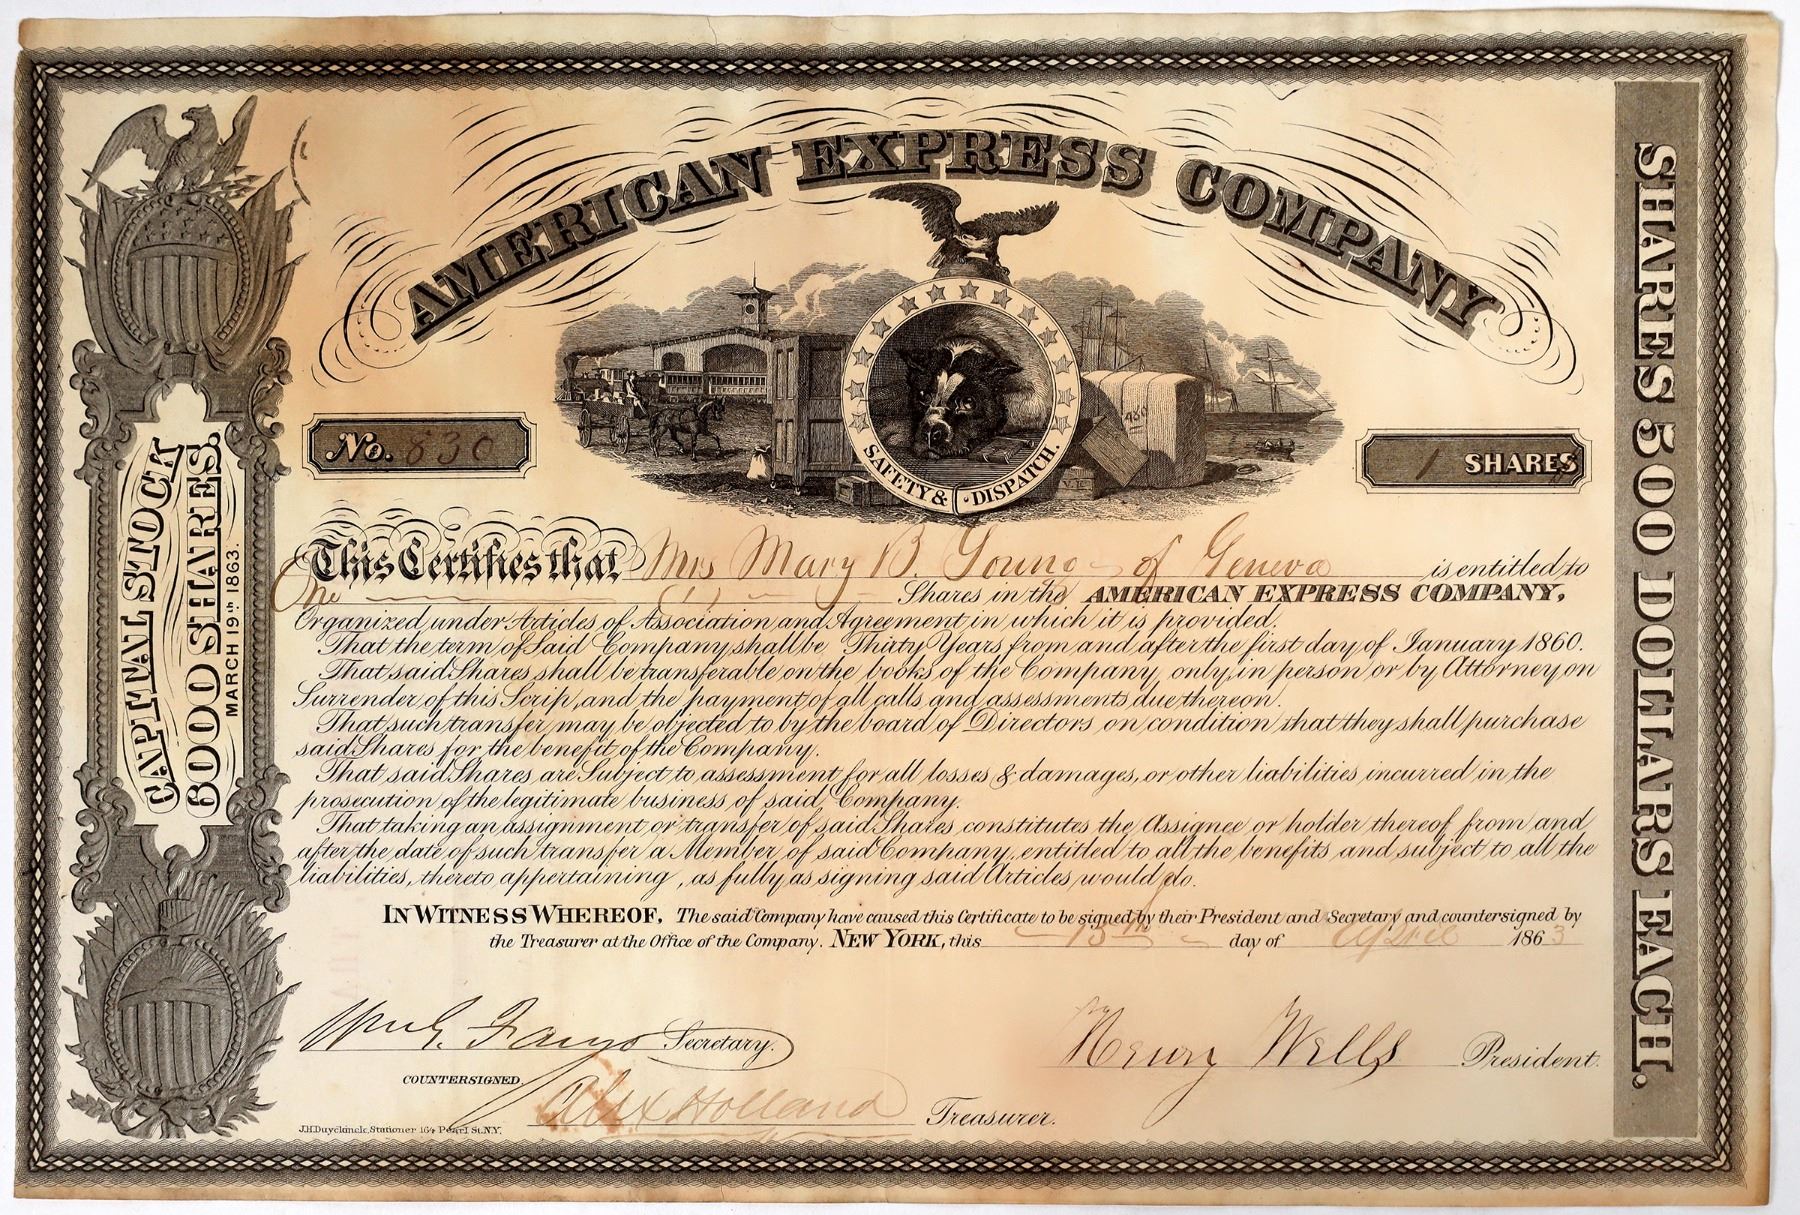 AMERICAN EXPRESS COMPANY
SAFETY & DISPATCH.
480
No. 830
1 SHARES
CAPITAL STOCK
6000 SHARES.
MARCH 19th 1863.
This Certifies that Mrs Mary B. Young of Geneva is entitled to
One (1) Shares in the AMERICAN EXPRESS COMPANY,
Organized under Articles of Association and Agreement in which it is provided.
That the term of Said Company shall be Thirty Years from and after the first day of January 1860.
That said Shares shall be transferable on the books of the Company, only, in person or by Attorney on
Surrender of this Scrip, and the payment of all calls and assessments due thereon.
That such transfer may be objected to by the board of Directors on condition that they shall purchase
said Shares for the benefit of the Company.
That said Shares are Subject to assessment for all losses & damages, or other liabilities incurred in the
prosecution of the legitimate business of said Company.
That taking an assignment or transfer of said Shares constitutes the Assignee or holder thereof from and
after the date of such transfer a Member of said Company, entitled to all the benefits and subject to all the
liabilities, thereto appertaining, as fully as signing said Articles would do.
IN WITNESS WHEREOF, The said Company have caused this Certificate to be signed by their President and Secretary and countersigned by
the Treasurer at the Office of the Company. NEW YORK, this 15th day of April 1863
Wm G. Fargo Secretary.
Henry Wells President.
COUNTERSIGNED.
Alex Holland Treasurer.
J.H. Duyckinck, Stationer 164 Pearl St. N.Y.
SHARES 500 DOLLARS EACH.